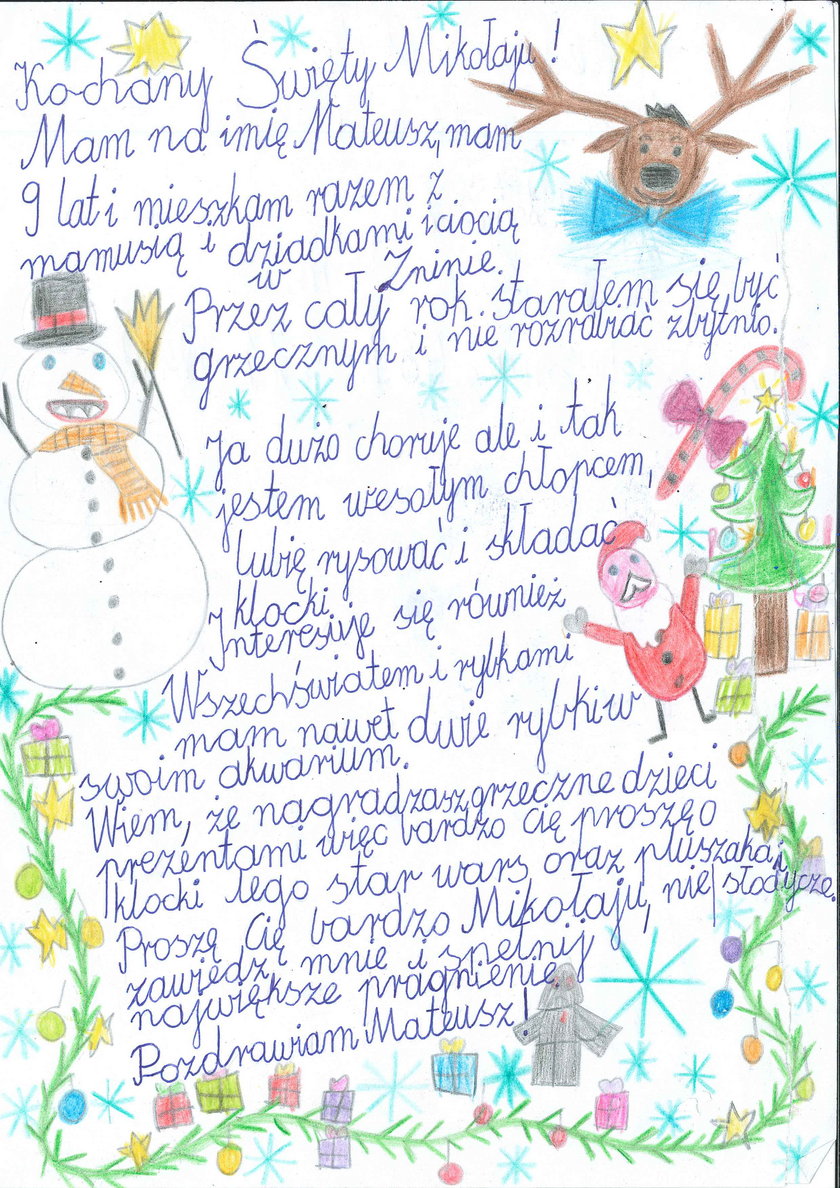 Kochany Święty Mikołaju!
Mam na imię Mateusz, mam
9 lat i mieszkam razem z
mamusią i dziadkami i ciocią
w Żninie.
Przez cały rok starałem się być
grzecznym i nie rozrabiać zbytnio.
Ja dużo choruje ale i tak
jestem wesołym chłopcem,
lubię rysować i składać
klocki
Interesuje się również
Wszechświatem i rybkami
mam nawet dwie rybki w
swoim akwarium.
Wiem, że nagradzasz grzeczne dzieci
prezentami więc bardzo Cię proszę o
klocki lego star wars oraz pluszaka i
słodycze.
Proszę Cię bardzo Mikołaju, nie
zawiedź mnie i spełnij
największe pragnienie
Pozdrawiam Mateusz!